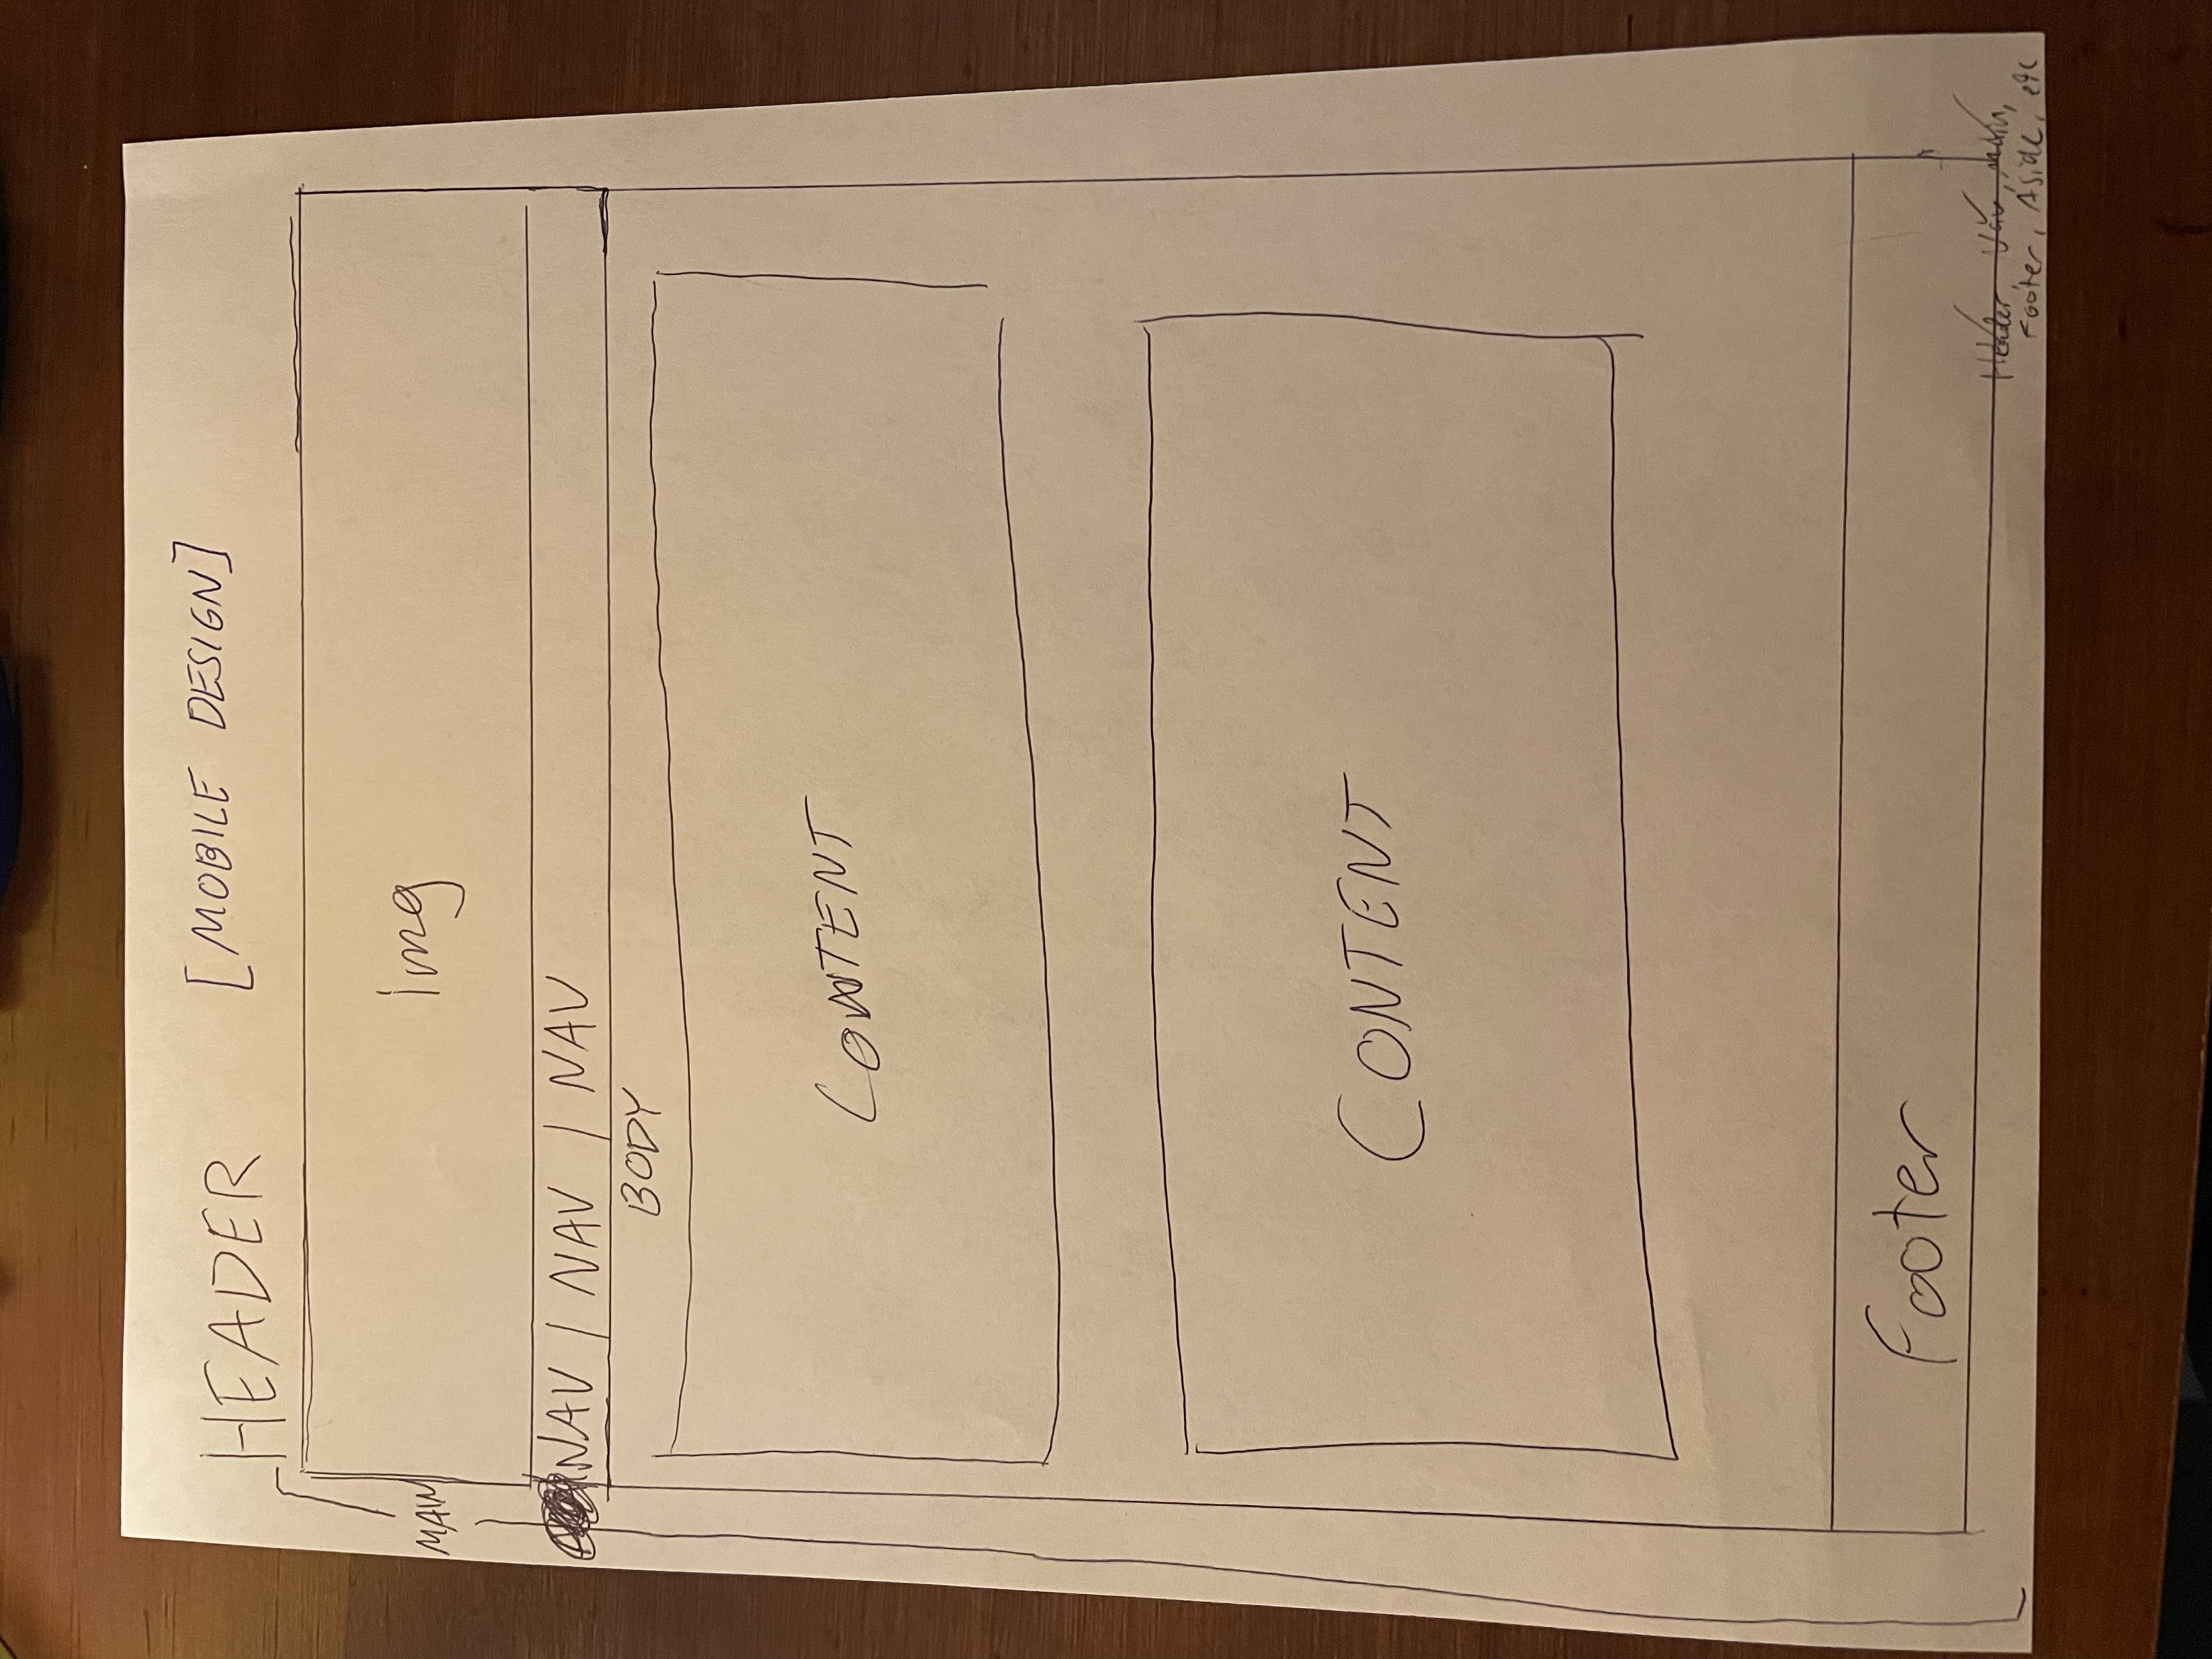 HEADER [MOBILE DESIGN]
img
MAIN
NAV / NAV / NAV
BODY
CONTENT
CONTENT
Footer
Header, Nav, Main,
Footer, Aside, etc